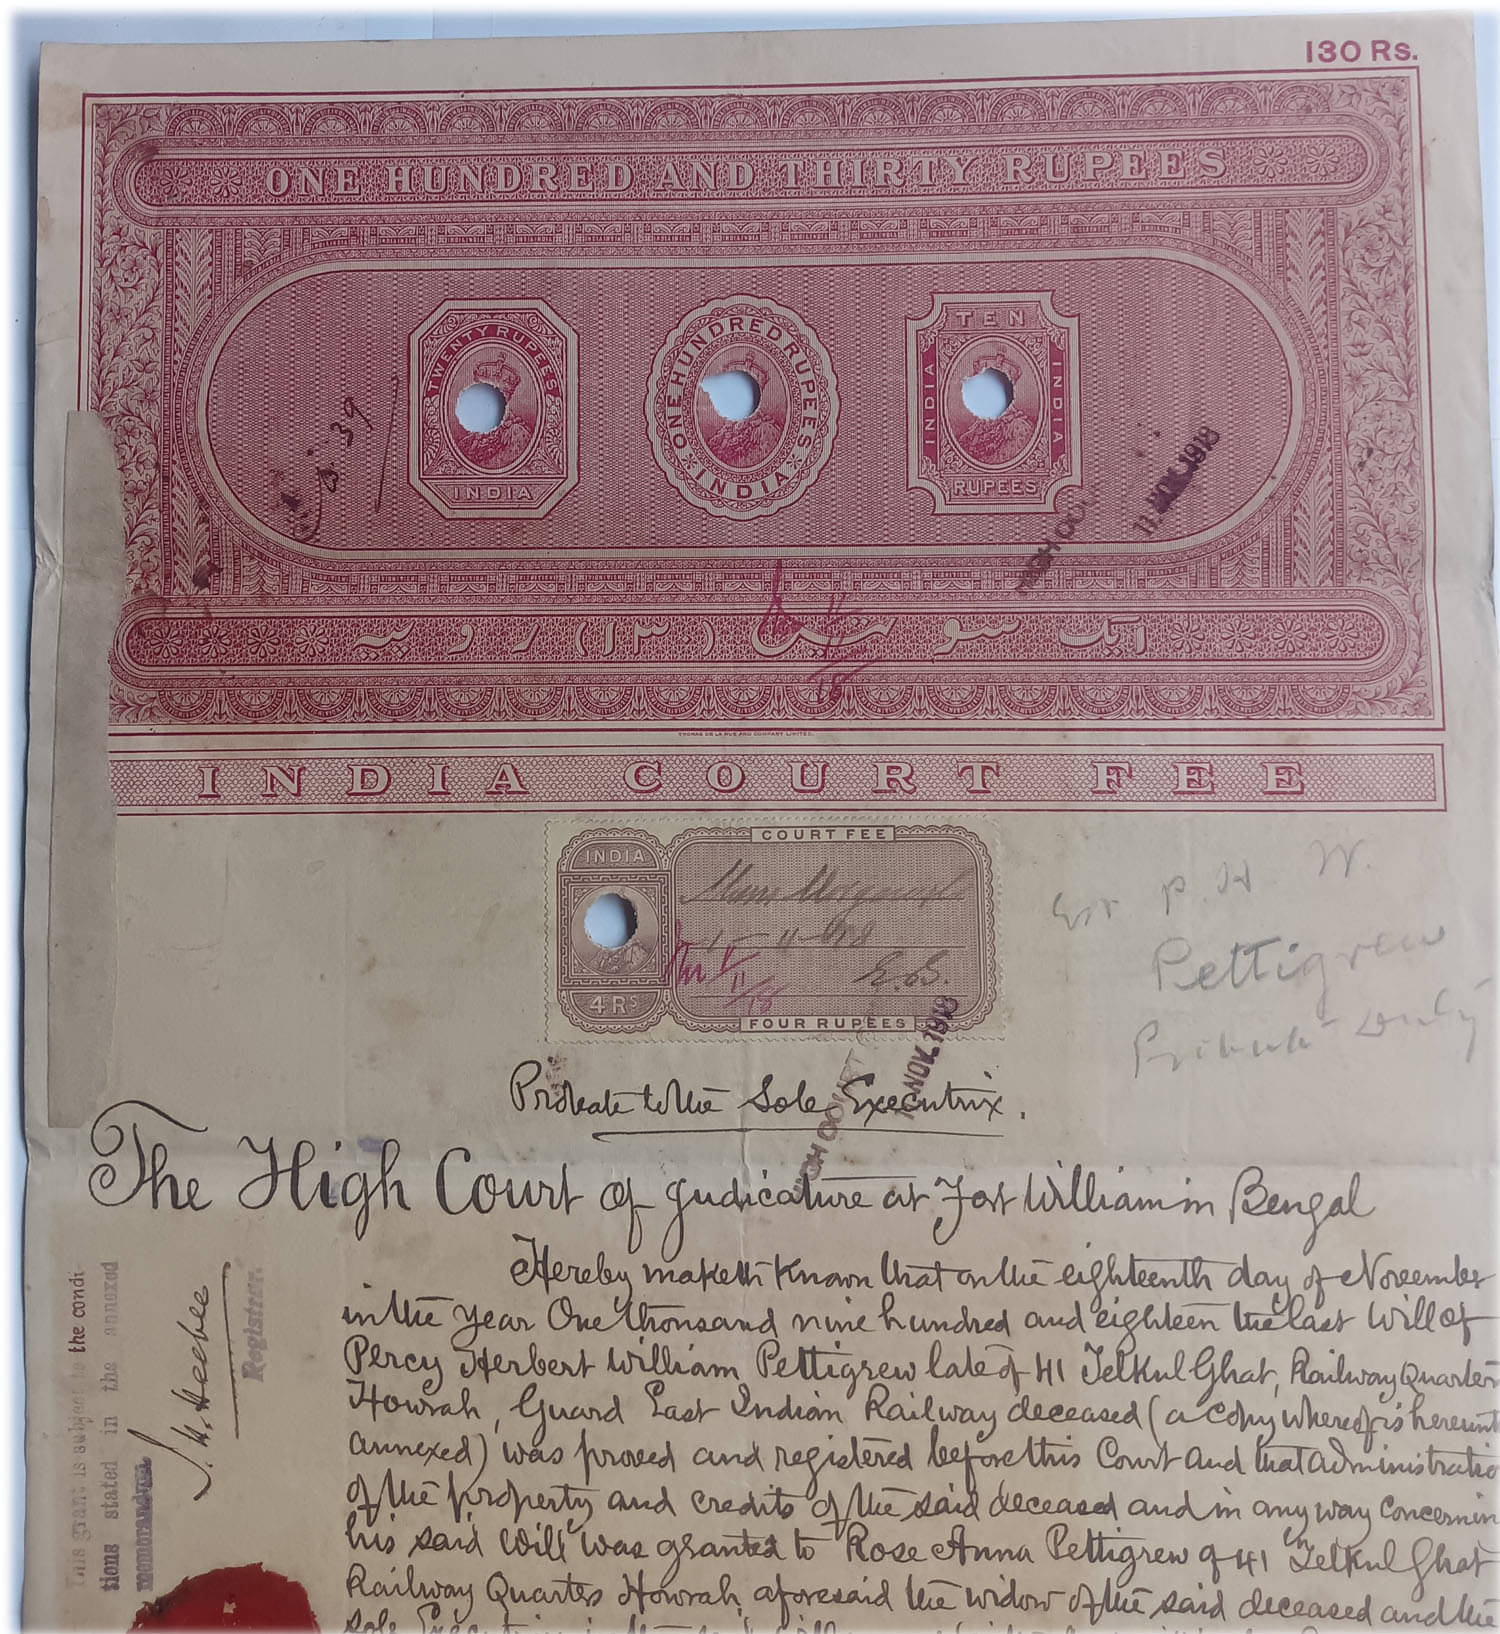 130 Rs.
ONE HUNDRED AND THIRTY RUPEES
TWENTY RUPEES
INDIA
ONE HUNDRED RUPEES
INDIA
TEN
INDIA
INDIA
RUPEES
39
HIGH COU
11 1918
ایک سو تیس (۱۳۰) روپیہ
11
11
18
THOMAS DE LA RUE AND COMPANY LIMITED.
INDIA COURT FEE
COURT FEE
INDIA
11-918
E.B.
11
11
18
4 RS
FOUR RUPEES
HIGH COURT
NOV. 1918
P. H. W.
Pettigrew
Duty
Probate to the Sole Executrix.
The High Court of Judicature at Fort William in Bengal
Hereby maketh known that on the eighteenth day of November
in the year One thousand nine hundred and eighteen the last Will of
Percy Herbert William Pettigrew late of 41 Telkul Ghat, Railway Quarters
Howrah, Guard East Indian Railway deceased (a copy whereof is hereunt
annexed) was proved and registered before this Court and that administratio
of the property and credits of the said deceased and in any way concernin
his said Will was granted to Rose Anna Pettigrew of 41 Telkul Ghat
Railway Quarters Howrah aforesaid the widow of the said deceased and the
sole
This grant is subject to the condi-
tions stated in the annexed
memorandum
Registrar.